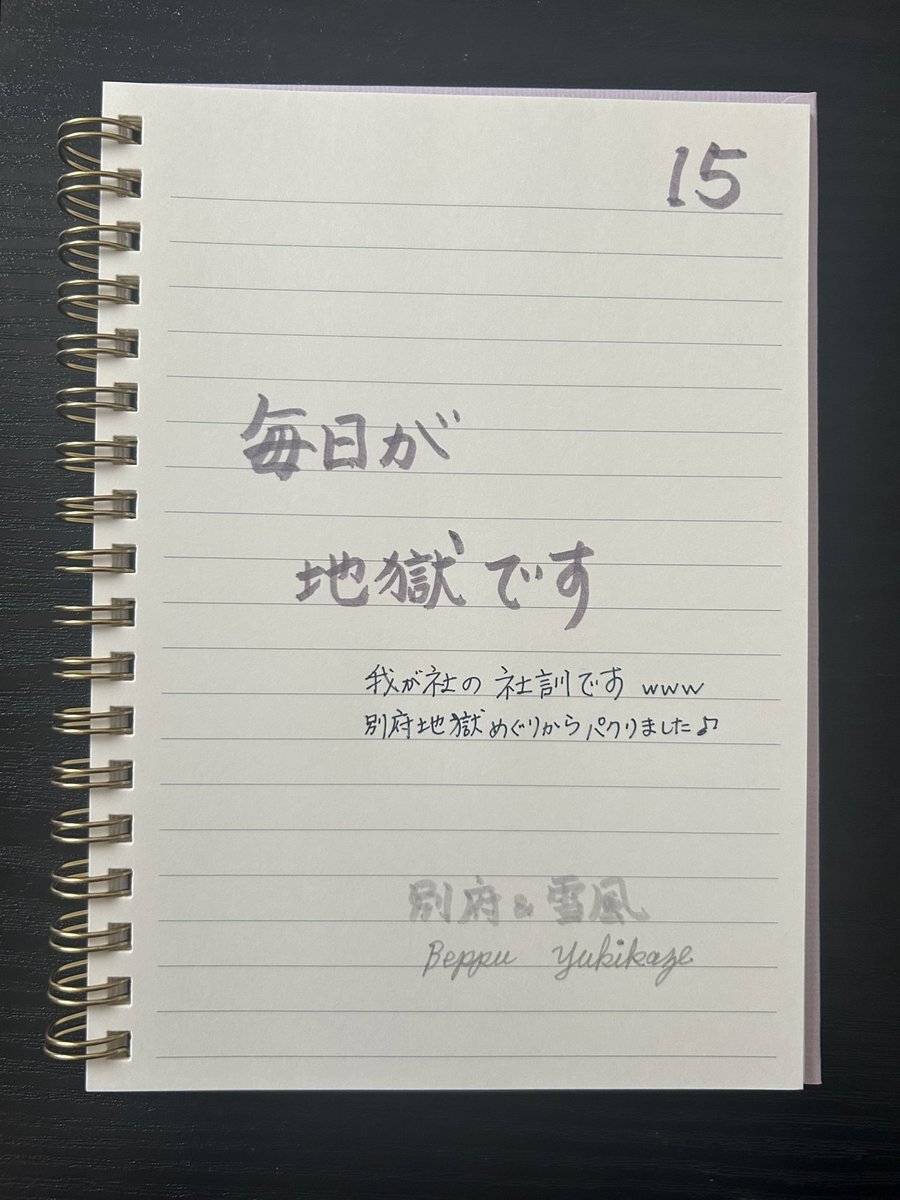 15
毎日が
地獄です
我が社の社訓です www
別府地獄めぐりからパクりました♪
別府&雪風
Beppu Yukikaze